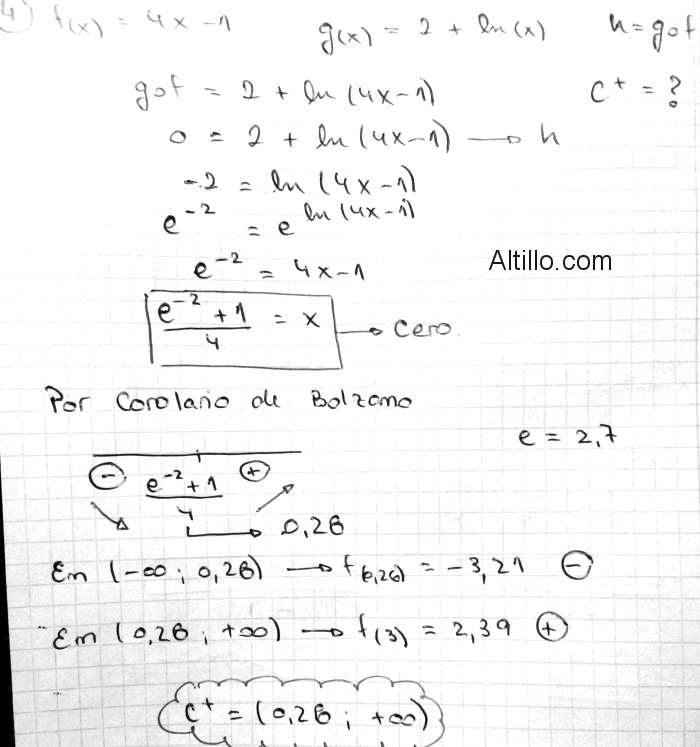 4) f(x) = 4x - 1 g(x) = 2 + ln(x) h = gof
gof = 2 + ln(4x-1) C⁺ = ?
0 = 2 + ln(4x-1) → h
-2 = ln(4x-1)
e⁻² = e^ln(4x-1)
e⁻² = 4x-1
Altillo.com
(e⁻² + 1)/4 = x → Cero.
Por Corolario de Bolzano
e = 2,7
⊖ (e⁻² + 1)/4 ⊕
→ 0,28
En (-∞; 0,28) → f(0,26) = -3,21 ⊖
En (0,28; +∞) → f(3) = 2,39 ⊕
C⁺ = (0,28; +∞)